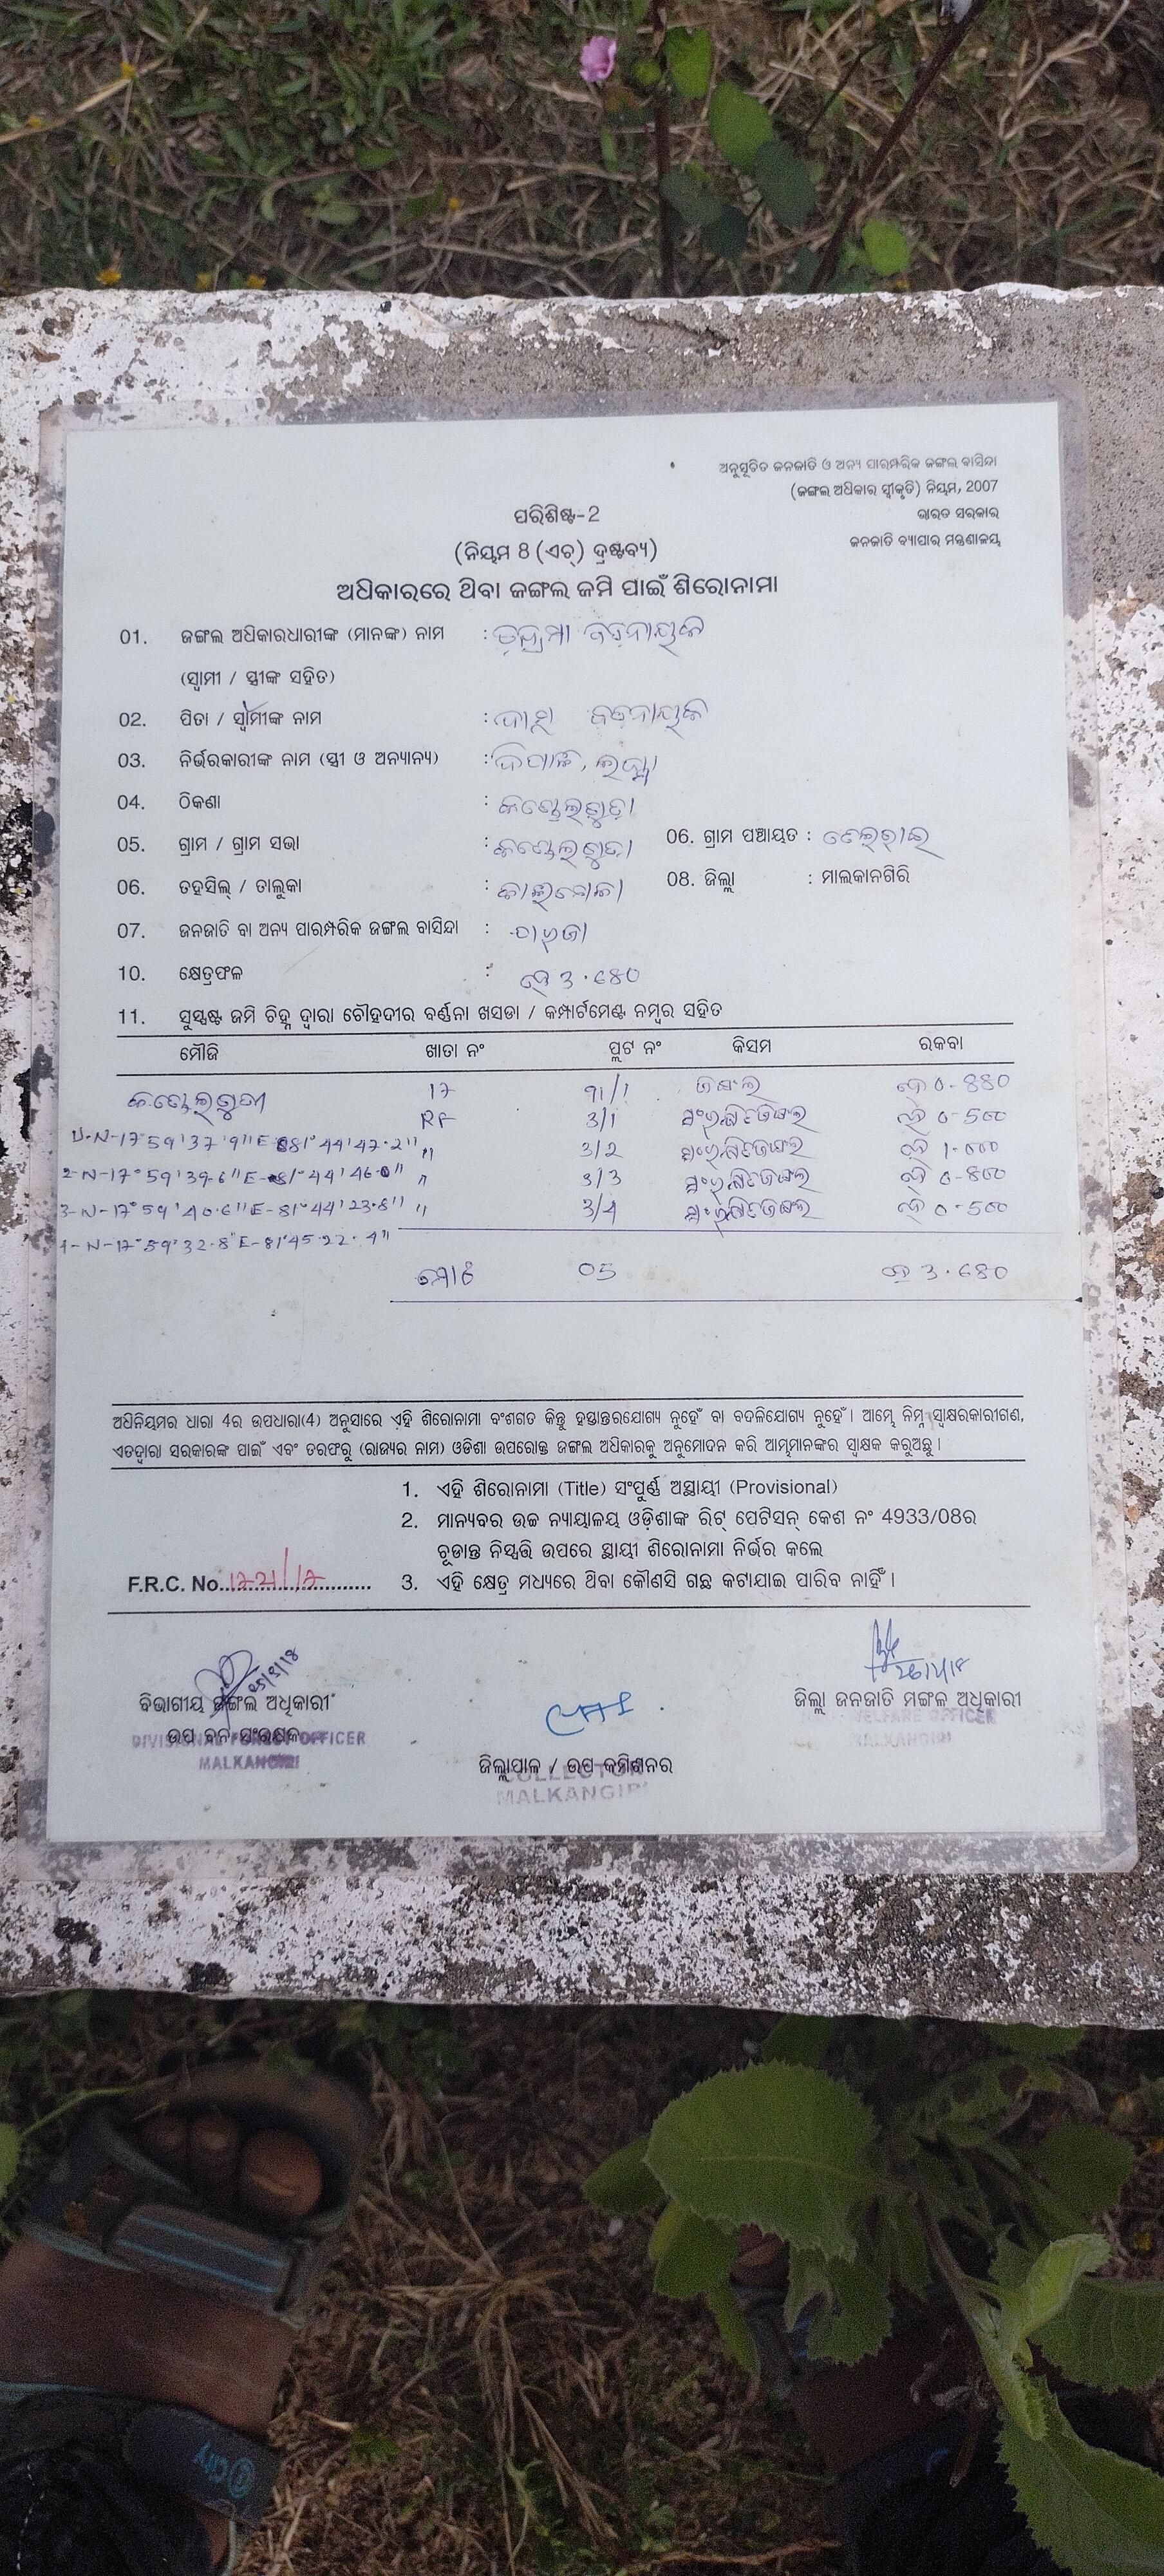 ଅନୁସୂଚିତ ଜନଜାତି ଓ ଅନ୍ୟ ପାରମ୍ପରିକ ଜଙ୍ଗଲ ବାସିନ୍ଦା
(ଜଙ୍ଗଲ ଅଧିକାର ସ୍ୱୀକୃତି) ନିୟମ, 2007
ଭାରତ ସରକାର
ଜନଜାତି ବ୍ୟାପାର ମନ୍ତ୍ରଣାଳୟ
ପରିଶିଷ୍ଟ-2
(ନିୟମ 8 (ଏଚ୍) ଦ୍ରଷ୍ଟବ୍ୟ)
ଅଧିକାରରେ ଥିବା ଜଙ୍ଗଲ ଜମି ପାଇଁ ଶିରୋନାମା
01. ଜଙ୍ଗଲ ଅଧିକାରଧାରୀଙ୍କ (ମାନଙ୍କ) ନାମ :
(ସ୍ୱାମୀ / ସ୍ତ୍ରୀଙ୍କ ସହିତ)
02. ପିତା / ସ୍ୱାମୀଙ୍କ ନାମ :
03. ନିର୍ଭରକାରୀଙ୍କ ନାମ (ସ୍ତ୍ରୀ ଓ ଅନ୍ୟାନ୍ୟ) :
04. ଠିକଣା :
05. ଗ୍ରାମ / ଗ୍ରାମ ସଭା : 06. ଗ୍ରାମ ପଞ୍ଚାୟତ :
06. ତହସିଲ୍ / ତାଲୁକା : 08. ଜିଲ୍ଲା : ମାଲକାନଗିରି
07. ଜନଜାତି ବା ଅନ୍ୟ ପାରମ୍ପରିକ ଜଙ୍ଗଲ ବାସିନ୍ଦା :
10. କ୍ଷେତ୍ରଫଳ : ହେ 3.680
11. ସୁସ୍ପଷ୍ଟ ଜମି ଚିହ୍ନ ଦ୍ୱାରା ଚୌହଦୀର ବର୍ଣ୍ଣନା ଖସଡା / କମ୍ପାର୍ଟମେଣ୍ଟ ନମ୍ବର ସହିତ
ମୌଜି ଖାତା ନଂ ପ୍ଲଟ ନଂ କିସମ ରକବା
17 91/1 ଜଙ୍ଗଲ ହେ 0-880
RF 3/1 ହେ 0-500
1-N-17°59'37.9"E-81°44'47.2" " 3/2 ହେ 1-000
2-N-17°59'39.6"E-81°44'46.0" " 3/3 ହେ 0-800
3-N-17°59'40.6"E-81°44'23.8" " 3/4 ହେ 0-500
N-17°59'32.8"E-81°45'22.4"
ମୋଟ 05 ହେ 3.680
ଅଧିନିୟମର ଧାରା 4ର ଉପଧାରା(4) ଅନୁସାରେ ଏହି ଶିରୋନାମା ବଂଶଗତ କିନ୍ତୁ ହସ୍ତାନ୍ତରଯୋଗ୍ୟ ନୁହେଁ ବା ବଦଳିଯୋଗ୍ୟ ନୁହେଁ । ଆମ୍ଭେ ନିମ୍ନ ସ୍ୱାକ୍ଷରକାରୀଗଣ,
ଏତଦ୍ୱାରା ସରକାରଙ୍କ ପାଇଁ ଏବଂ ତରଫରୁ (ରାଜ୍ୟର ନାମ) ଓଡିଶା ଉପରୋକ୍ତ ଜଙ୍ଗଲ ଅଧିକାରକୁ ଅନୁମୋଦନ କରି ଆମ୍ଭମାନଙ୍କର ସ୍ୱାକ୍ଷକ କରୁଅଛୁ ।
1. ଏହି ଶିରୋନାମା (Title) ସଂପୂର୍ଣ୍ଣ ଅସ୍ଥାୟୀ (Provisional)
2. ମାନ୍ୟବର ଉଚ୍ଚ ନ୍ୟାୟାଳୟ ଓଡ଼ିଶାଙ୍କ ରିଟ୍ ପେଟିସନ୍ କେଶ ନଂ 4933/08ର
ଚୂଡାନ୍ତ ନିସ୍ପତ୍ତି ଉପରେ ସ୍ଥାୟୀ ଶିରୋନାମା ନିର୍ଭର କଲେ
F.R.C. No............................ 3. ଏହି କ୍ଷେତ୍ର ମଧ୍ୟରେ ଥିବା କୌଣସି ଗଛ କଟାଯାଇ ପାରିବ ନାହିଁ ।
ବିଭାଗୀୟ ଜଙ୍ଗଲ ଅଧିକାରୀ
ଉପ ବନ ସଂରକ୍ଷକ
DIVISIONAL FOREST OFFICER
MALKANGIRI
ଜିଲ୍ଲାପାଳ / ଉପ କମିଶନର
COLLECTOR
MALKANGIRI
ଜିଲ୍ଲା ଜନଜାତି ମଙ୍ଗଳ ଅଧିକାରୀ
WELFARE OFFICER
MALKANGIRI
city